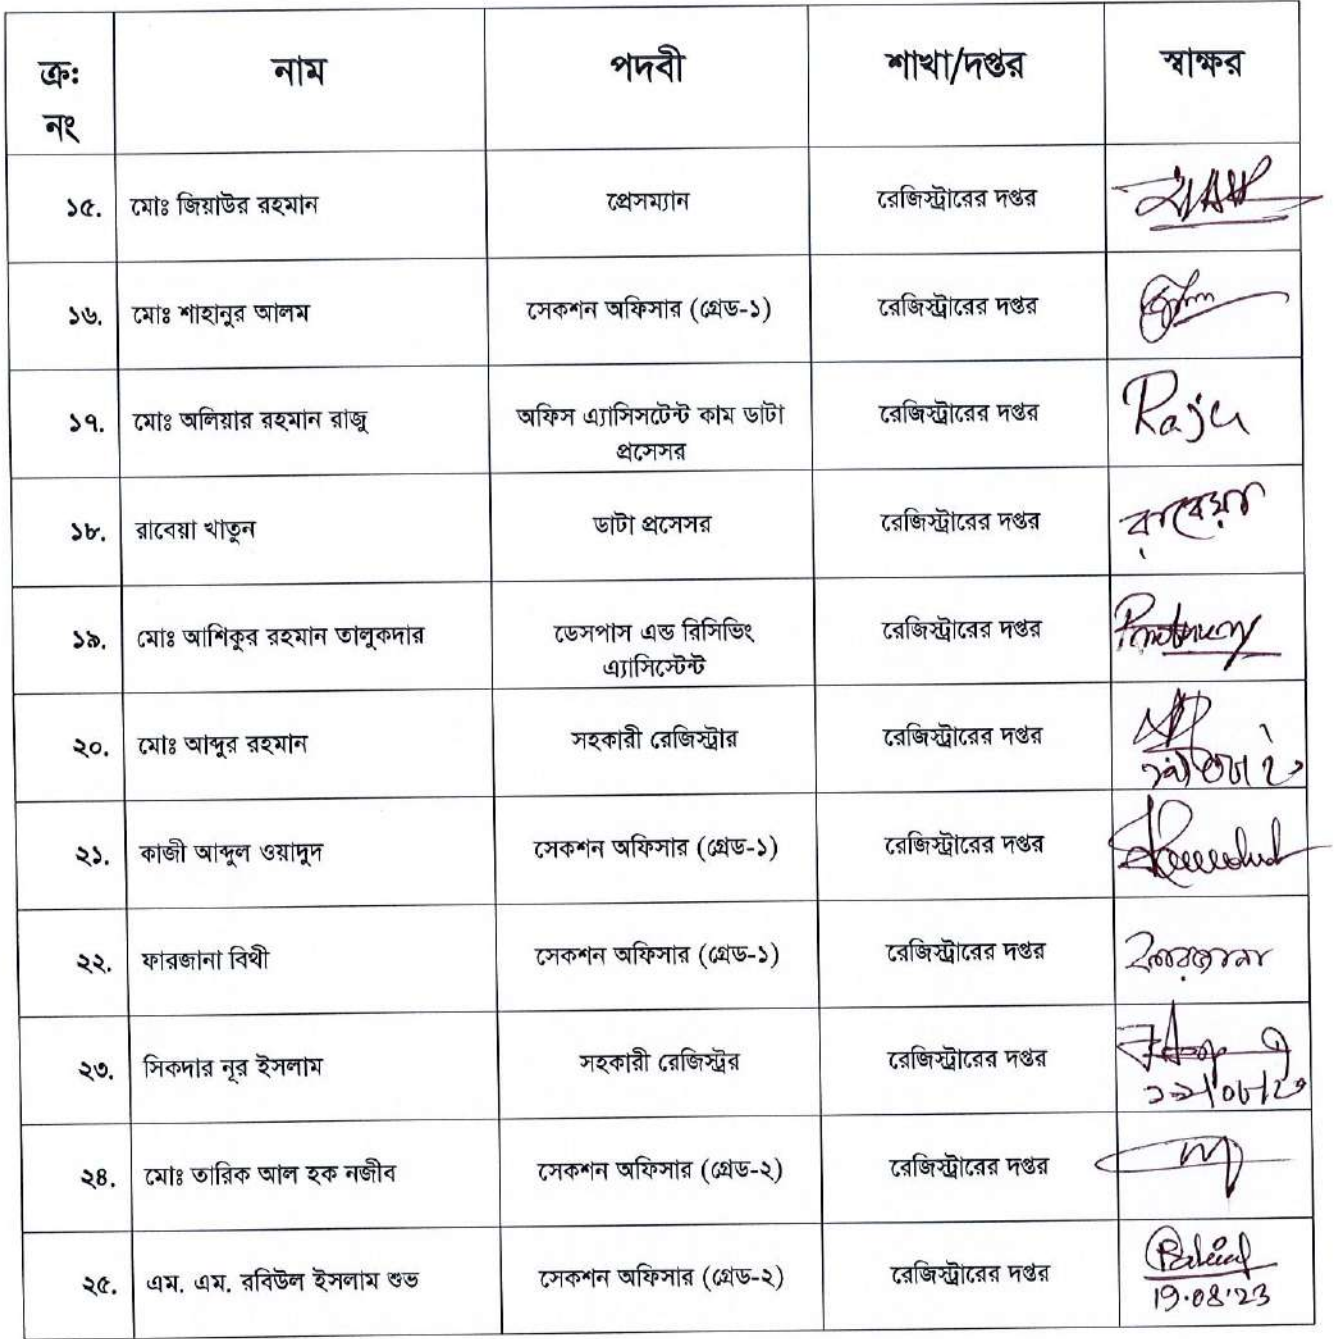 ক্র: নাম পদবী শাখা/দপ্তর স্বাক্ষর
নং
১৫. মোঃ জিয়াউর রহমান প্রেসম্যান রেজিস্ট্রারের দপ্তর
১৬. মোঃ শাহানুর আলম সেকশন অফিসার (গ্রেড-১) রেজিস্ট্রারের দপ্তর
১৭. মোঃ অলিয়ার রহমান রাজু অফিস এ্যাসিসটেন্ট কাম ডাটা রেজিস্ট্রারের দপ্তর Raju
প্রসেসর
১৮. রাবেয়া খাতুন ডাটা প্রসেসর রেজিস্ট্রারের দপ্তর রাবেয়া
১৯. মোঃ আশিকুর রহমান তালুকদার ডেসপাস এন্ড রিসিভিং রেজিস্ট্রারের দপ্তর
এ্যাসিস্টেন্ট
২০. মোঃ আব্দুর রহমান সহকারী রেজিস্ট্রার রেজিস্ট্রারের দপ্তর
২১. কাজী আব্দুল ওয়াদুদ সেকশন অফিসার (গ্রেড-১) রেজিস্ট্রারের দপ্তর
২২. ফারজানা বিথী সেকশন অফিসার (গ্রেড-১) রেজিস্ট্রারের দপ্তর ফারজানা
২৩. সিকদার নূর ইসলাম সহকারী রেজিস্ট্রর রেজিস্ট্রারের দপ্তর
২৪. মোঃ তারিক আল হক নজীব সেকশন অফিসার (গ্রেড-২) রেজিস্ট্রারের দপ্তর
২৫. এম. এম. রবিউল ইসলাম শুভ সেকশন অফিসার (গ্রেড-২) রেজিস্ট্রারের দপ্তর
19.08.23